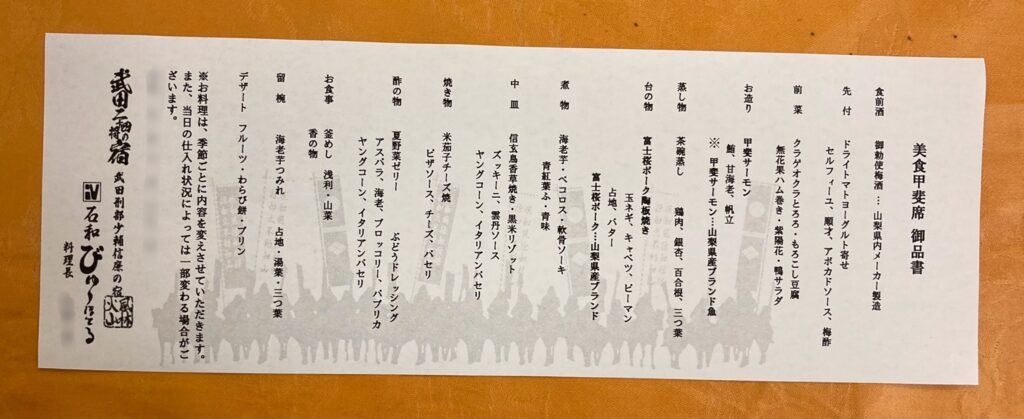 美食甲斐席 御品書
食前酒 御勅使梅酒 … 山梨県内メーカー製造
先付 ドライトマトヨーグルト寄せ
セルフィーユ、順才、アボカドソース、梅酢
前菜 クラゲオクラとろろ・もろこし豆腐
無花果ハム巻き・紫陽花・鴨サラダ
お造り 甲斐サーモン
鮪、甘海老、帆立
※ 甲斐サーモン…山梨県産ブランド魚
蒸し物 茶碗蒸し 鶏肉、銀杏、百合根、三つ葉
台の物 富士桜ポーク陶板焼き
玉ネギ、キャベツ、ピーマン
占地、バター
富士桜ポーク…山梨県産ブランド
煮物 海老芋・ペコロス・軟骨ソーキ
青紅葉ふ・青味
中皿 信玄鳥香草焼き・黒米リゾット
ズッキーニ、雲丹ソース
ヤングコーン、イタリアンパセリ
焼き物 米茄子チーズ焼
ピザソース、チーズ、パセリ
酢の物 夏野菜ゼリー ぶどうドレッシング
アスパラ、海老、ブロッコリー、パプリカ
ヤングコーン、イタリアンパセリ
お食事 釜めし 浅利・山菜
香の物
留椀 海老芋つみれ 占地・湯葉・三つ葉
デザート フルーツ・わらび餅・プリン
※お料理は、季節ごとに内容を変えさせていただきます。
また、当日の仕入れ状況によっては一部変わる場合がご
ざいます。
武田二十四将の宿 武田刑部少輔信廉の宿 風林火山
石和びゅーほてる
料理長